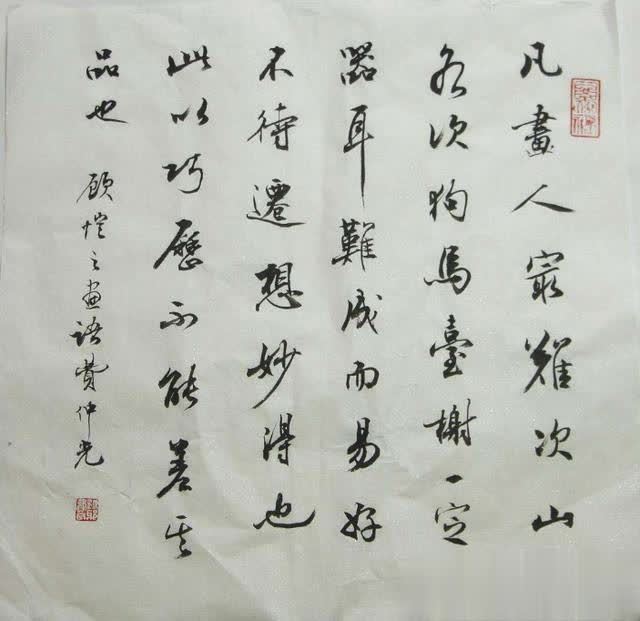 凡畫人最難次山
水次狗馬臺榭一定
器耳難成而易好
不待遷想妙得也
此以巧歷不能差其
品也 顧愷之畫語費仲光